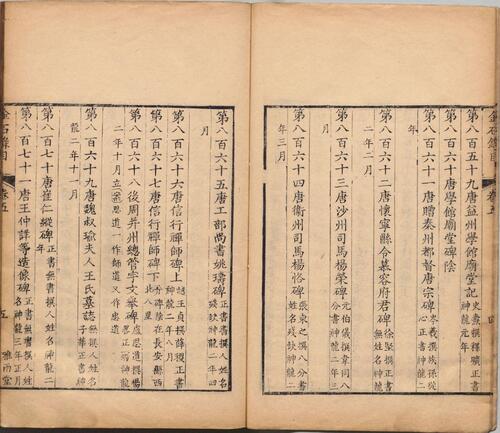 金石錄目 卷五 四
第八百五十九唐益州學館廟堂記 撰釋職正書神龍元年
第八百六十唐學館廟堂碑陰
第八百六十一唐贈秦州都督唐宗碑 義撰族孫從心正書神龍二
年二月
第八百六十二唐懷寧縣令慕容府君碑 徐堅撰正書無姓名
第八百六十三唐沙州司馬楊榮碑 元伯儀撰韋同八分書神龍二年三
月
第八百六十四唐衛州司馬楊恪碑 張柬之撰八分書姓名殘缺神龍二
年三月
第八百六十五唐工部尚書姚璹碑 正書書撰人姓名殘缺神龍二年四
月
第八百六十六唐信行禪師碑上 越王貞撰薛稷正書神龍二年八月
第八百六十七唐信行禪師碑下 碑陰在長安縣西北八里
第八百六十八後周并州總管宇文舉碑 盧思道撰神龍
二年十月立 盧思道一作師道又作忠道
第八百六十九唐魏叔瑜夫人王氏墓誌 無撰人姓名子華正書神
龍二年十一月
第八百七十唐崔仁縱碑 正書無書撰人姓名年
第八百七十一唐王仲謀等造像碑 正書無書撰人姓名神龍三年正月
金石錄目 卷五 五 雅雨堂